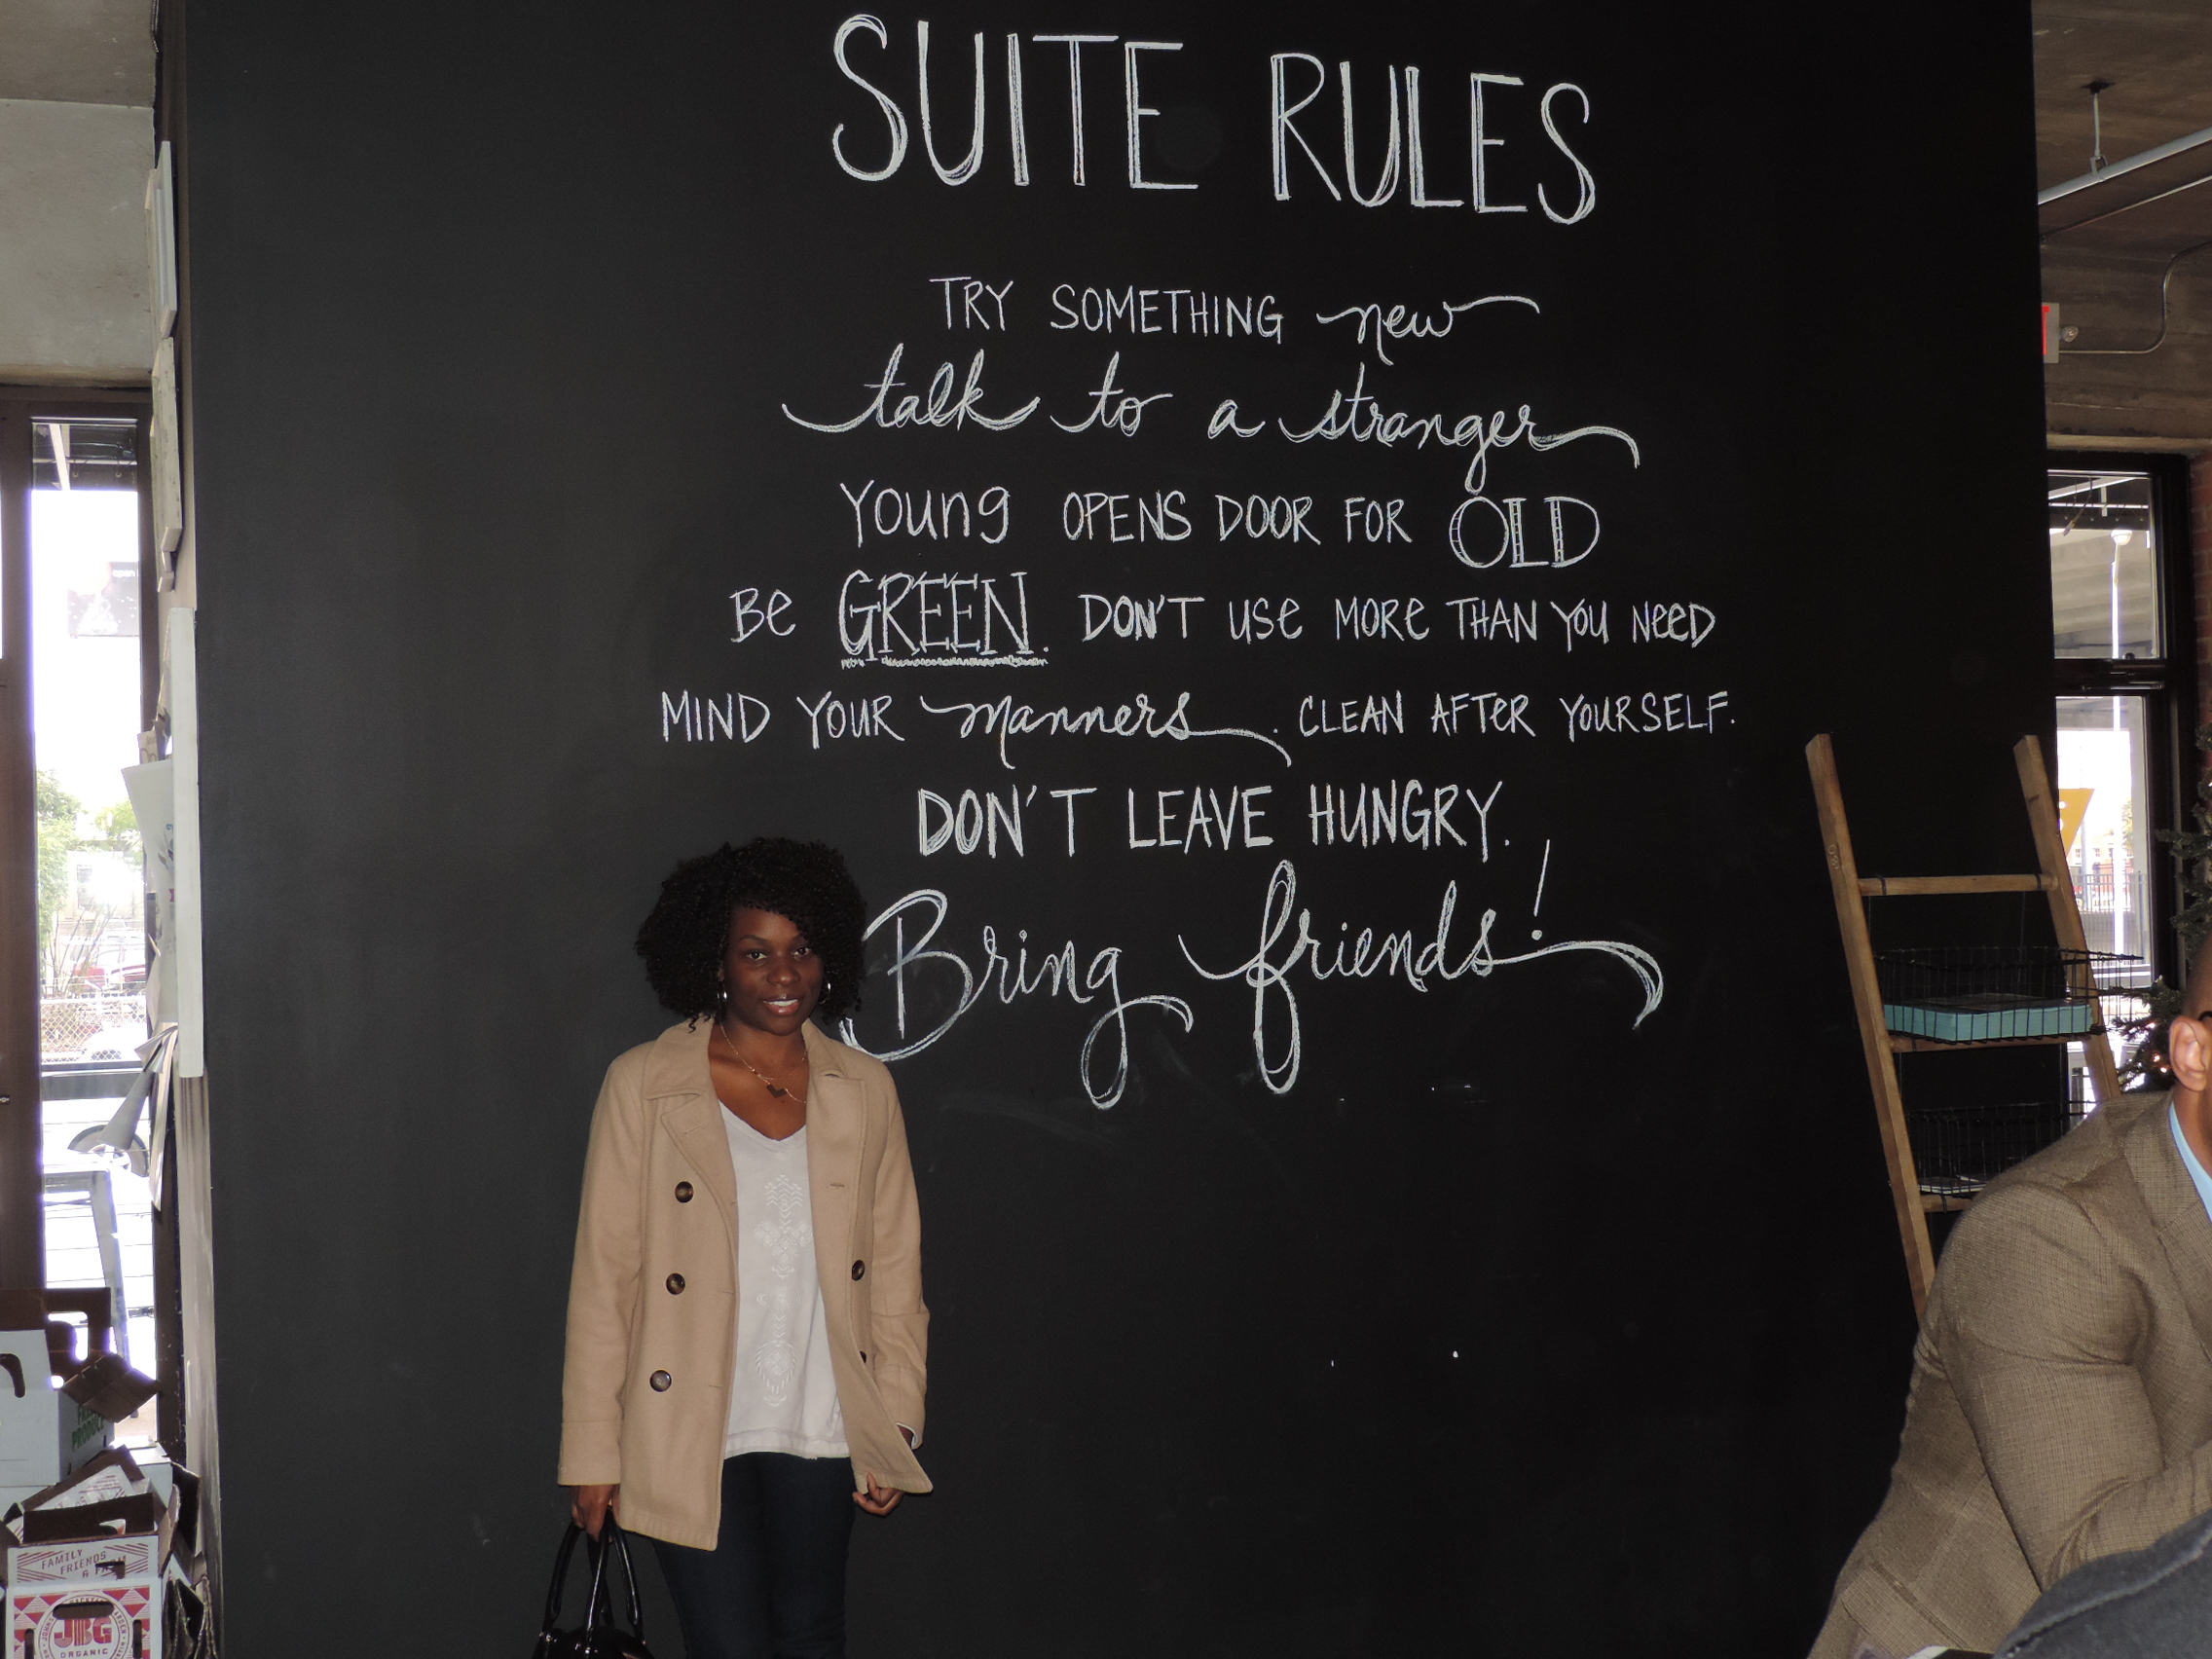 SUITE RULES
TRY SOMETHING new
talk to a stranger
Young OPENS DOOR FOR OLD
Be GREEN. DON'T USe MORe THAN YOU NeeD
MIND YOUR manners. CLEAN AFTeR YOURSELF.
DON'T LEAVE HUNGRY.
Bring friends!
FAMILY
FRIENDS
JBG
ORGANIC